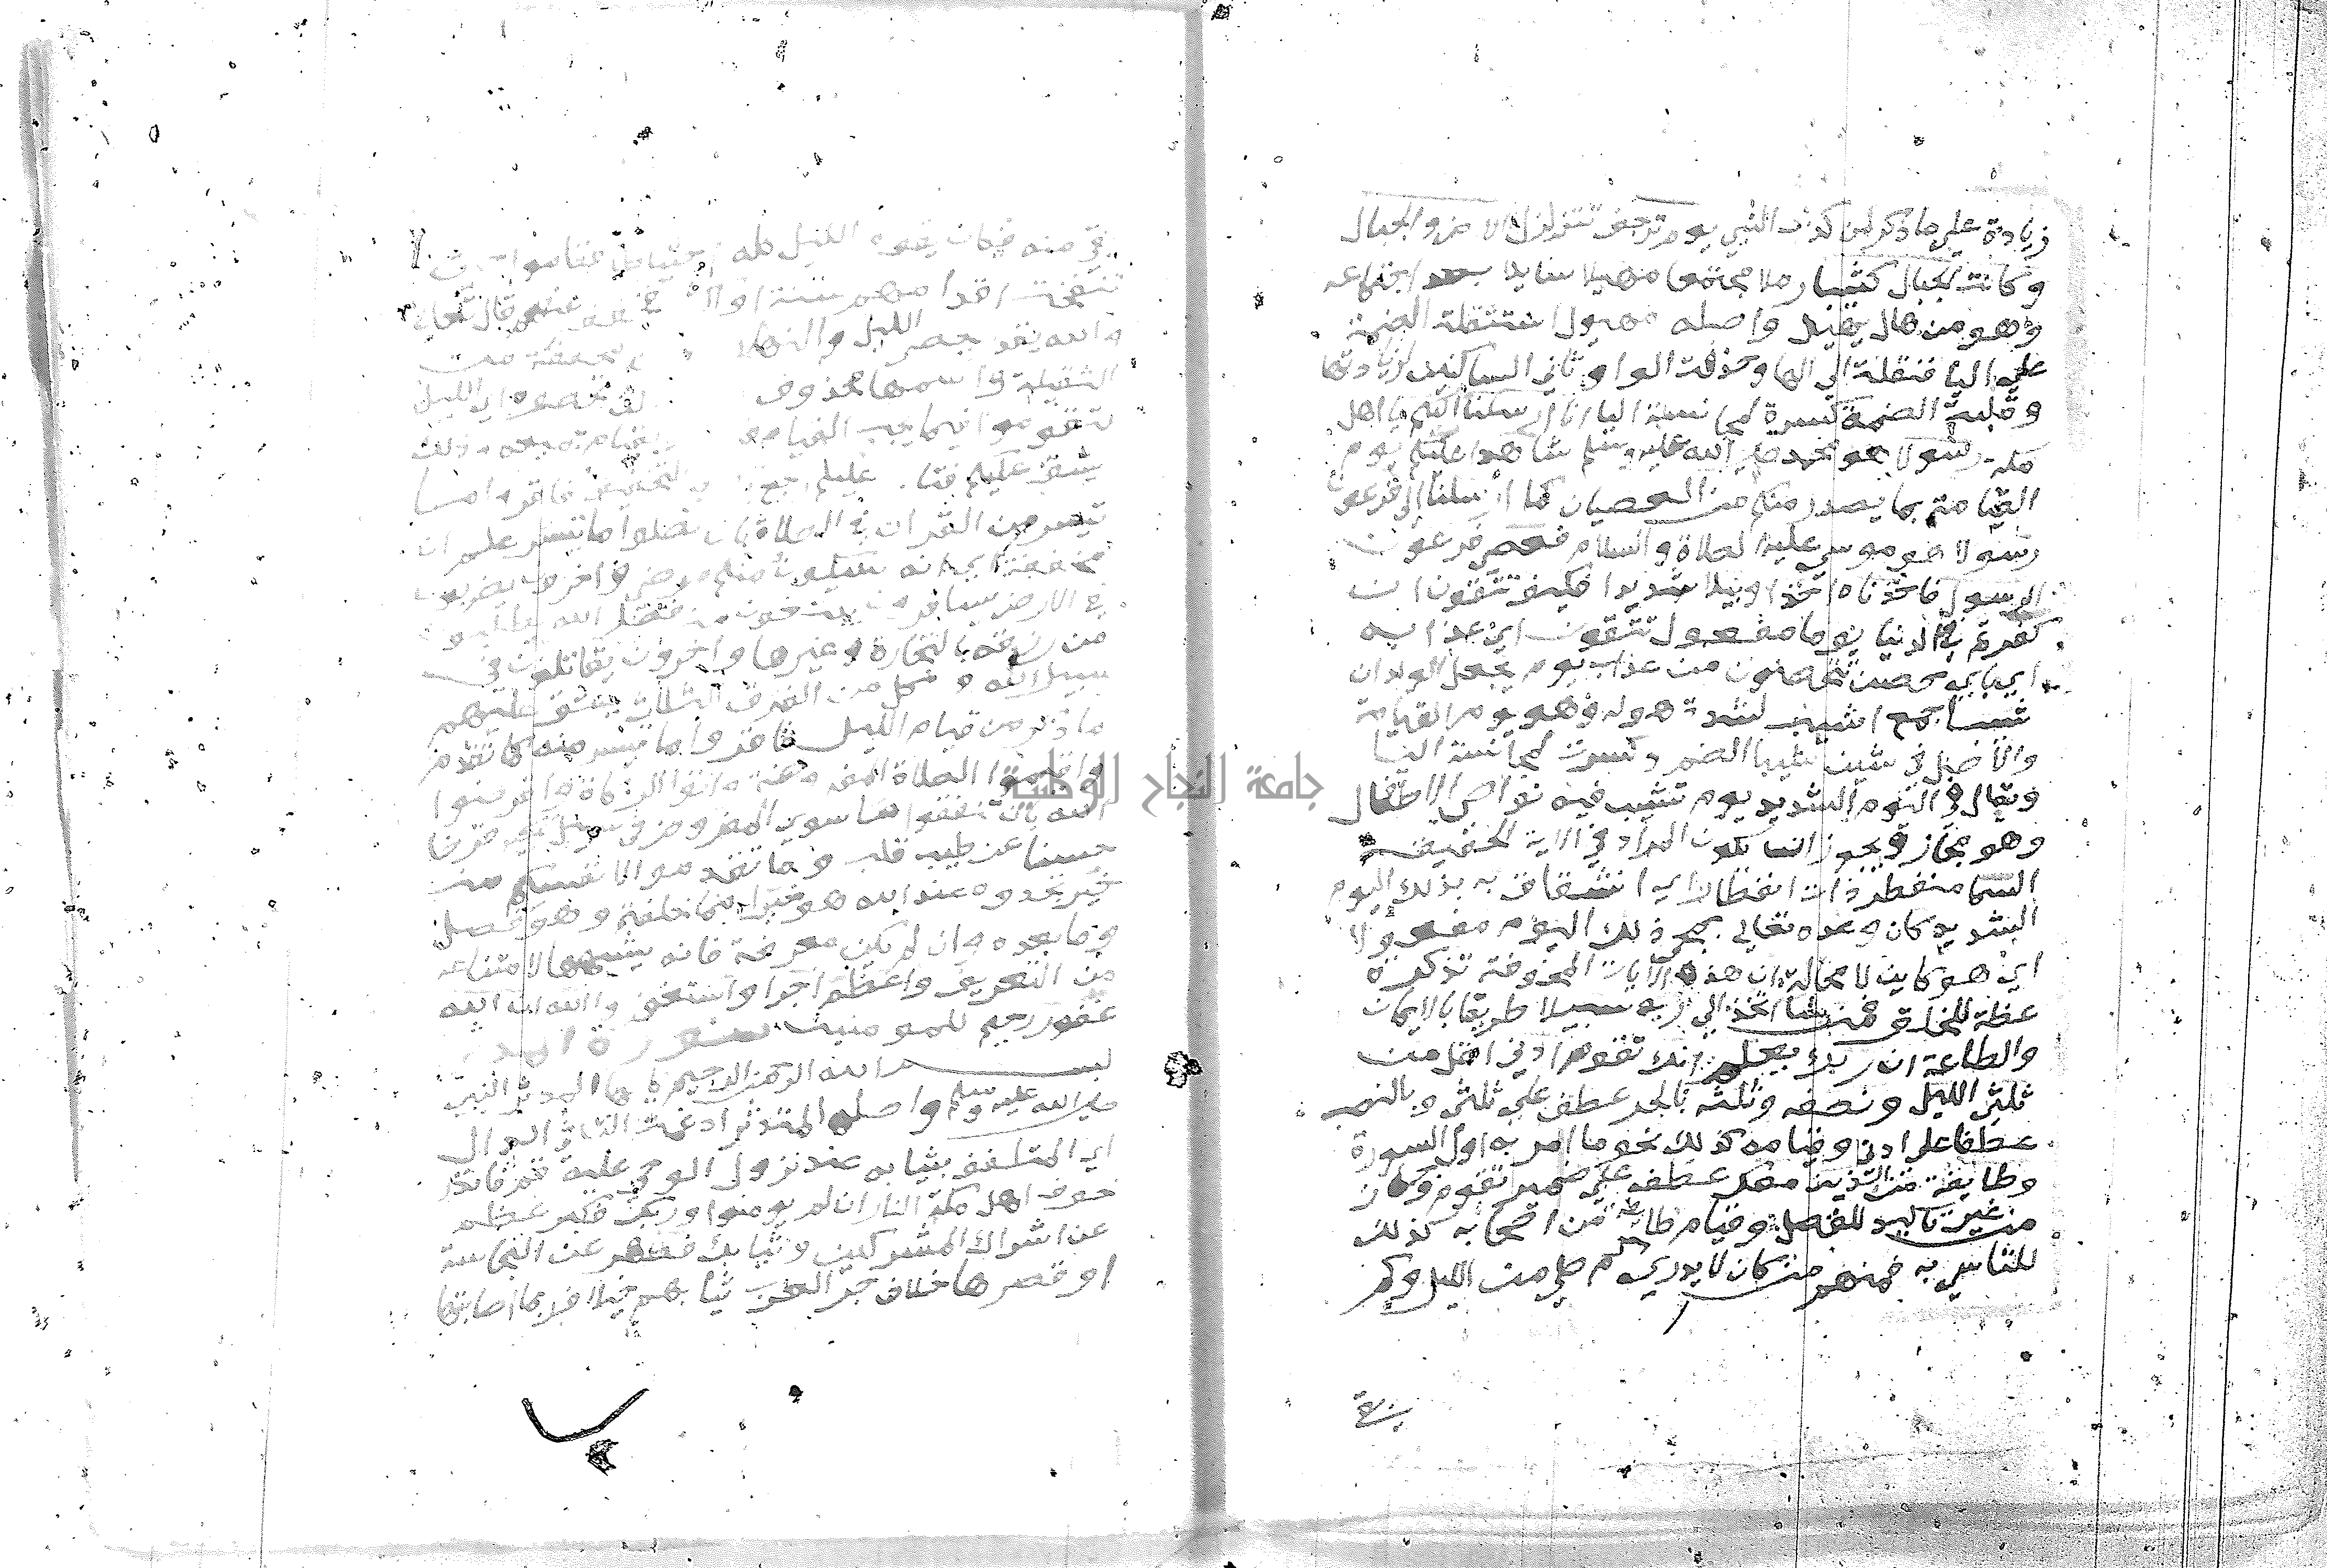 زيادة علي ما ذكر لمن كذب النبي يوم ترجف تتزلزل الارض والجبال
وكانت الجبال كثيبا رملا مجتمعا مهيلا سايلا بعد اجتماعه
وهو من هال يهيل واصله مهيول استثقلت الضمة
علي اليا فنقلت الي الها وحذفت الواو ثاني الساكنين لزيادتها
وقلبت الضمة كسرة لمجانسة اليا انا ارسلنا اليكم يا اهل
مكة رسولا هو محمد صلي الله عليه وسلم شاهدا عليكم يوم
القيامة بما يصدر منكم من العصيان كما ارسلنا الي فرعون
رسولا هو موسي عليه الصلاة والسلام فعصي فرعون
الرسول فاخذناه اخذا وبيلا شديدا فكيف تتقون ان
كفرتم في الدنيا يوما مفعول تتقون اي عذابه
اي باي حصن تتحصنون من عذاب يوم يجعل الولدان
شيبا جمع اشيب لشدة هوله وهو يوم القيامة
والأصل في شين شيبا الضم وكسرت لمجانسة اليا
ويقال في اليوم الشديد يوم تشيب فيه نواصي الاطفال
وهو مجاز ويجوز ان يكون المراد في الاية الحقيقة
السما منفطر ذات انفطار اي انشقاق به بذلك اليوم
الشديد كان وعده تعالي بمجي ذلك اليوم مفعولا
اي هو كاين لا محالة ان هذه الآيات المخوفة تذكرة
عظة للخلق فمن شا اتخذ الي ربه سبيلا طريقا بالايمان
والطاعة ان ربك يعلم انك تقوم ادني اقل من
ثلثي الليل ونصفه وثلثه بالجر عطف علي ثلثي وبالنصب
عطفا علي ادني وقيامه كذلك نحو ما امر به اول السورة
وطايفة من الذين معك عطف علي ضمير تقوم وجاز
من غير تاكيد للفصل وقيام طايفة من اصحابه كذلك
للتاسي به فمنهم من كان لا يدري كم صلي من الليل وكم
بقي
بقي منه فكان يقوم الليل كله احتياطا فقاموا حتي
انتفخت اقدامهم سنة او اكثر فخفف عنهم قال تعالي
والله يقدر يحصي الليل والنهار مخففة من
الثقيلة واسمها محذوف لن تحصوه اي الليل
لتقوموا فيما يجب القيام فيه الا بقيام جميعه وذلك
يشق عليكم فتاب عليكم رجع بكم الي التخفيف فاقروا ما
تيسر من القران في الصلاة بان تصلوا ما تيسر علم ان
مخففة اي انه سيكون منكم مرضي واخرون يضربون
في الارض يسافرون يبتغون من فضل الله يطلبون
من رزقه بالتجارة وغيرها واخرون يقاتلون في
سبيل الله وكل من الفرق الثلاث يشق عليهم
ما ذكر من قيام الليل فاقروا ما تيسر منه كما تقدم
واقيموا الصلاة المفروضة واتوا الزكاة واقرضوا
الله بان تنفقوا ما سوي المفروض في سبيل الخير قرضا
حسنا عن طيب قلب وما تقدموا لانفسكم من
خير تجدوه عند الله هو خيرا مما خلفتم وهو فصل
وما بعده وان لم يكن معرفة فانه يشبهها لامتناعه
من التعريف واعظم اجرا واستغفروا الله ان الله
غفور رحيم للمومنين سورة المدثر
بسم الله الرحمن الرحيم يا ايها المدثر النبي
صلي الله عليه وسلم واصله المتدثر ادغمت التا في الدال
اي المتلفف بثيابه عند نزول الوحي عليه قم فانذر
خوف اهل مكة النار ان لم يومنوا وربك فكبر عظم
عن اشراك المشركين وثيابك فطهر عن النجاسة
او قصرها خلاف جر العرب ثيابهم خيلا فربما اصابتها
جامعة النجاح الوطنية